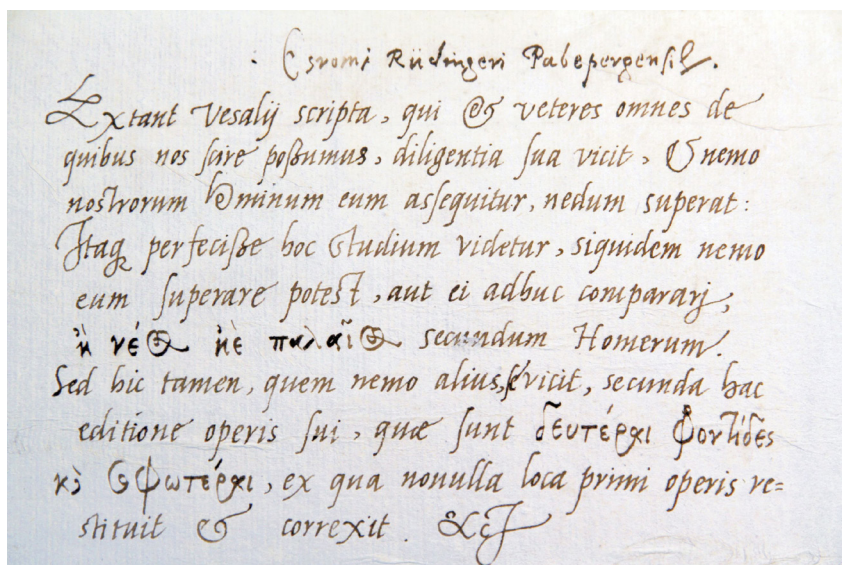 Esromi Rüdingeri Pabepergensis.
Extant Vesalij scripta, qui & veteres omnes de
quibus nos scire possumus, diligentia sua vicit, & nemo
nostrorum hominum eum assequitur, nedum superat:
Itaq perfecisse hoc studium videtur, siquidem nemo
eum superare potest, aut ei adhuc comparari,
ἢ νέος ἠὲ παλαιὸς secundum Homerum.
Sed hic tamen, quem nemo alius, se vicit, secunda hac
editione operis sui, quæ sunt δευτέραι φροντίδες
κὶ σοφωτέραι, ex qua nonulla loca primi operis re=
stituit & correxit. &c